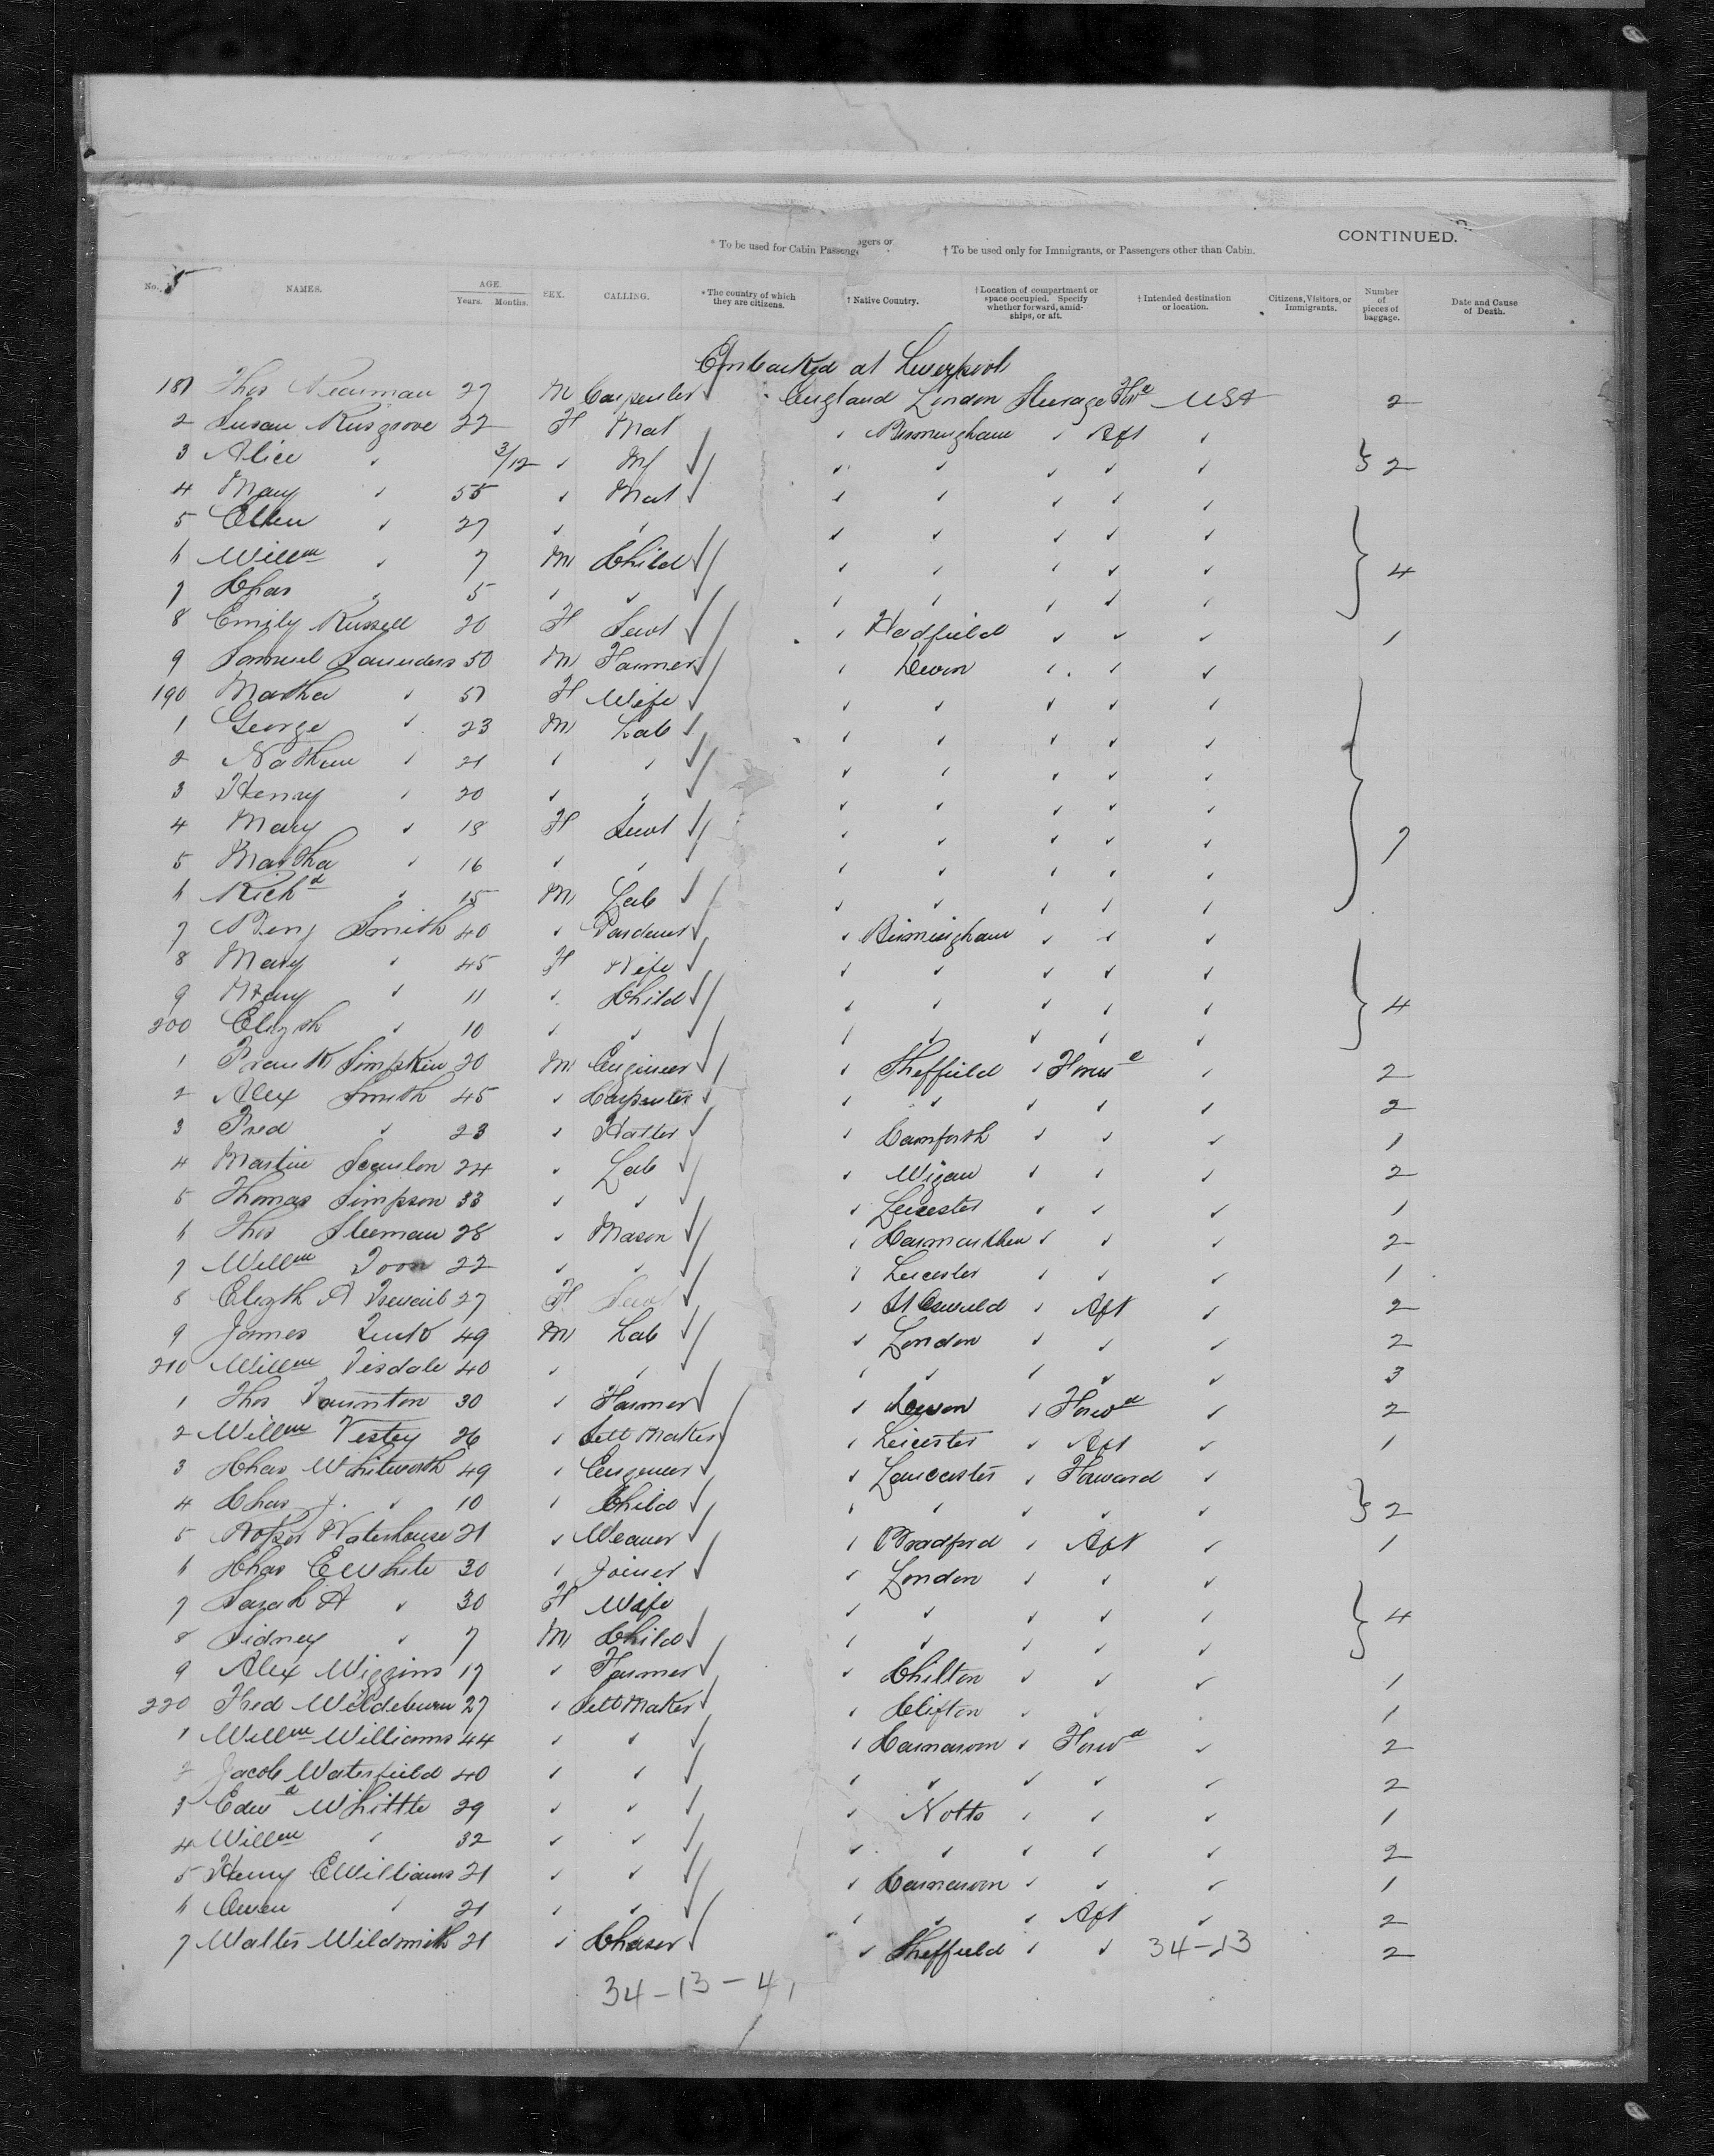 CONTINUED.
* To be used for Cabin Passengers or
† To be used only for Immigrants, or Passengers other than Cabin.
No. NAMES. AGE. Years. Months. SEX. CALLING. * The country of which they are citizens. † Native Country. † Location of compartment or space occupied. Specify whether forward, amidships, or aft. † Intended destination or location. Citizens, Visitors, or Immigrants. Number of pieces of baggage. Date and Cause of Death.
Embarked at Liverpool
181 Thos Neauman 27 M Carpenter England London Steerage For^d USA 2
2 Susan Rusgrove 22 F Mat Birmingham Aft
3 Alice 3/12 Inf 2
4 Mary 55 Mat
5 Ellen 27
6 Will^m 7 M Child 4
7 Chas 5
8 Emily Russell 20 F Servt Hadfield 1
9 Samuel Saunders 50 M Farmer Devon
190 Martha 51 F Wife
1 George 23 M Lab
2 Nathan 21
3 Henry 20
4 Mary 18 F Servt 7
5 Martha 16
6 Rich^d 15 M Lab
7 Benj Smith 40 Gardener Birmingham
8 Mary 45 F Wife
9 Mary 11 Child 4
200 Elizth 10
1 Frank Simpkin 20 M Engineer Sheffield Forw^d 2
2 Alex Smith 45 Carpenter 2
3 Fred 23 Hatter Carnforth 1
4 Martin Scanlon 24 Lab Wigan 2
5 Thomas Simpson 33 Leicester 1
6 Thos Sleeman 28 Mason Carmarthen 2
7 Will^m Toon 22 Leicester 1
8 Elizth A 27 F Servt Aft 2
9 James 49 M Lab London 2
210 Will^m Tisdale 40 3
1 Thos Taunton 30 Farmer Devon Forw^d 2
2 Will^m Vestey 26 Sett Maker Leicester Aft 1
3 Chas Whitworth 49 Engineer Lancaster Forward
4 Chas J. 10 Child 2
5 Waterhouse 21 Weaver Bradford Aft 1
6 Chas E White 30 Joiner London
7 Sarah A 30 F Wife 4
8 Sidney 7 M Child
9 Alex Wiggins 17 Farmer Chilton 1
220 Fred 27 Sett Maker Clifton 1
1 Will^m Williams 44 Carnarvon Forw^d 2
2 Jacob Waterfield 40 2
3 Edw^d Whittle 29 Notts 1
4 Will^m 32 2
5 Henry E Williams 21 Carnarvon 1
6 Owen 21 Aft 2
7 Walter Wildsmith 21 Chaser Sheffield 34-13 2
34-13-41